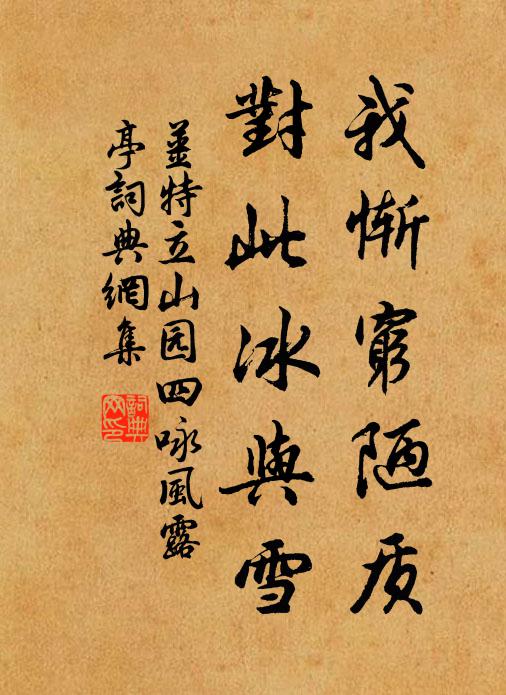 我惭窮陋质
對此冰與雪
薑特立山园四咏風露
亭詞典網集
詞典
网印